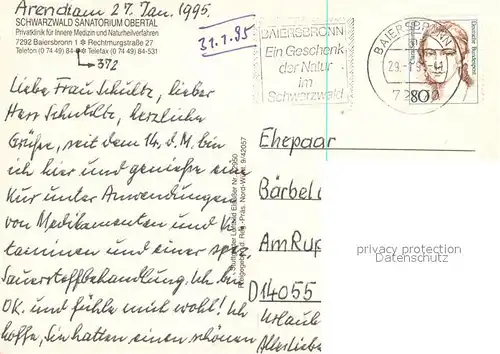 Arendiam 27. Jan. 1995.
SCHWARZWALD SANATORIUM OBERTAL
Privatklinik für Innere Medizin und Naturheilverfahren
7292 Baiersbronn 1 Rechtmurgstraße 27
Telefon (0 74 49) 84-0 Telefax (0 74 49) 84-531
372
31.1.95
Liebe Frau Schultz, lieber
Herr Schultz, herzliche
Grüße, seit dem 14. d. M. bin
ich hier und genieße eine
Kur unter Anwendungen
von Medikamenten und Vi
taminen und einer spez.
Sauerstoffbehandlung. Ich bin
OK. und fühle mich wohl! Ich
hoffe, Sie hatten einen schönen
BAIERSBRONN
Ein Geschenk
der Natur
im
Schwarzwald
BAIERSBRONN
80
Deutsche Bundespost
Ehepaar
Bärbel
Am Rup
D 14055
Urlaub
Allerliebe
privacy protection
Datenschutz